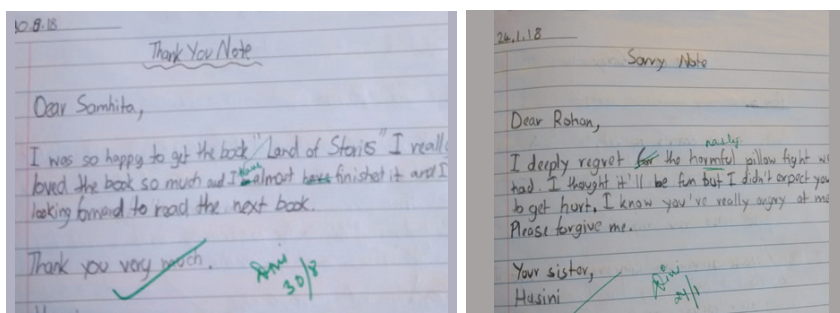 .8.18
Thank You Note
Dear Samhita,
I was so happy to get the book "Land of Stories" I reall
loved the book so much and I have almost finished it and I
looking forward to read the next book.
Thank you very much.
30/8
24.1.18
Sorry Note
Dear Rohan,
nasty
I deeply regret for the harmful pillow fight we
had. I thought it'll be fun but I didn't expect you
to get hurt, I know you're really angry at me
Please forgive me.
Your sister,
Hasini
24/1